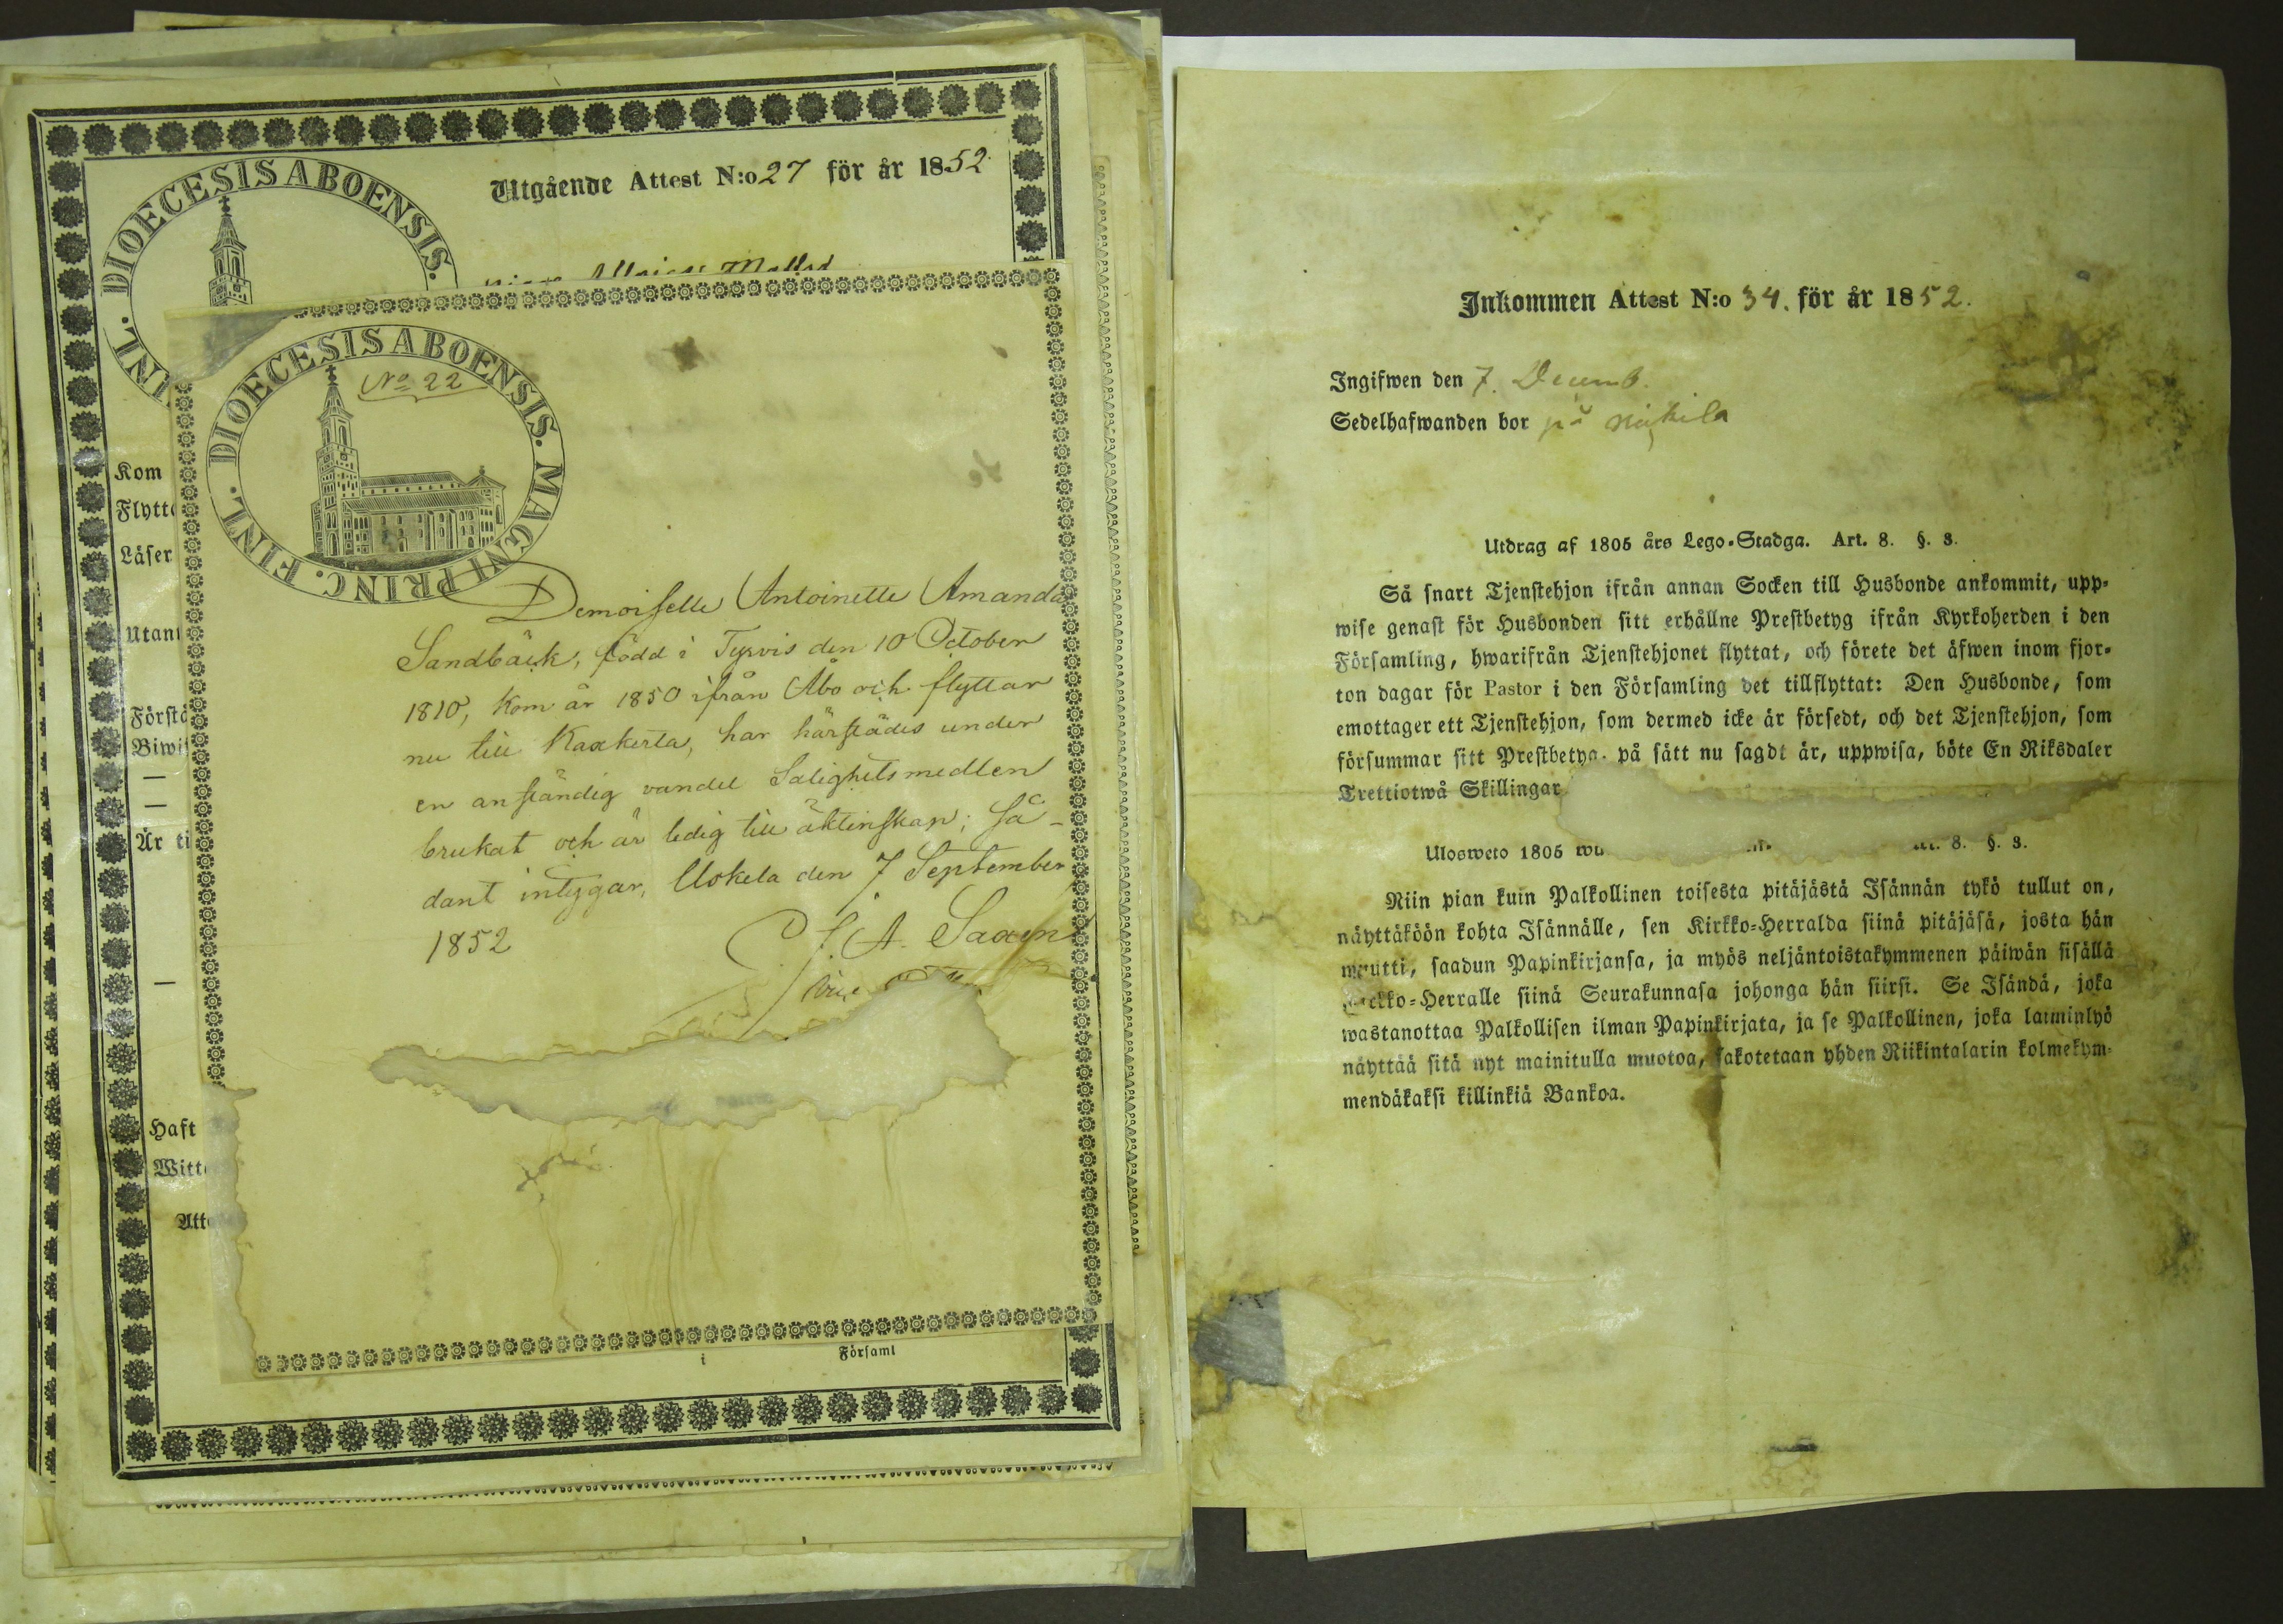 DIOECESIS ABOENSIS.
INL.
Utgående Attest N:o 27 för år 1852
Kom
Flytt
Läser
Utan
Förstå
Biwi
Är ti
Haft
Witt
Att
i Församl
DIOECESIS ABOENSIS. MAGNI PRINC. FINL.
No 22
Demoiselle Antoinette Amanda
Sandbäck, född i Tyrvis den 10 October
1810, kom år 1850 ifrån Åbo och flyttar
nu till Kaxkerta, har härstädes under
en anständig vandel Salighetsmedlen
brukat och är ledig till äktenskap; Så-
dant intygar, Uskela den 7 September
1852
Vice
Inkommen Attest N:o 34. för år 1852.
Ingifwen den 7. Decemb.
Sedelhafwanden bor på
Utdrag af 1805 års Lego-Stadga. Art. 8. §. 3.
Så snart Tjenstehjon ifrån annan Socken till Husbonde ankommit, upp-
wise genast för Husbonden sitt erhållne Prestbetyg ifrån Kyrkoherden i den
Församling, hwarifrån Tjenstehjonet flyttat, och förete det äfwen inom fjor-
ton dagar för Pastor i den Församling det tillflyttat: Den Husbonde, som
emottager ett Tjenstehjon, som dermed icke är försedt, och det Tjenstehjon, som
försummar sitt Prestbetyg på sätt nu sagdt är, uppwisa, böte En Riksdaler
Trettiotwå Skillingar
Ulosweto 1805 wu 8. §. 3.
Niin pian kuin Palkollinen toisesta pitäjästä Isännän tykö tullut on,
näyttäköön kohta Isännälle, sen Kirkko-Herralda siinä pitäjäsä, josta hän
muutti, saadun Papinkirjansa, ja myös neljäntoistakymmenen päiwän sisällä
Kirkko-Herralle siinä Seurakunnasa johonga hän siirsi. Se Isändä, joka
wastanottaa Palkollisen ilman Papinkirjata, ja se Palkollinen, joka laiminlyö
näyttää sitä nyt mainitulla muotoa, sakotetaan yhden Riikintalarin kolmekym-
mendäkaksi killinkiä Bankoa.